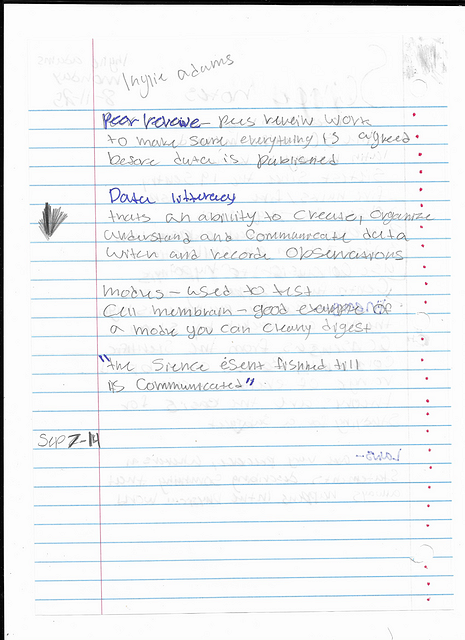 Inglie adams
Pear reveiw- pees reveiw work
to make sure everything is agreed
before data is published
Data litteracy
thats an ability to create, organize
understand and communicate data
and record observations
- used to test
Cell membrane - good
a you can digest
"the Sience esent fishned till
is Communicated"
Sep 7-14